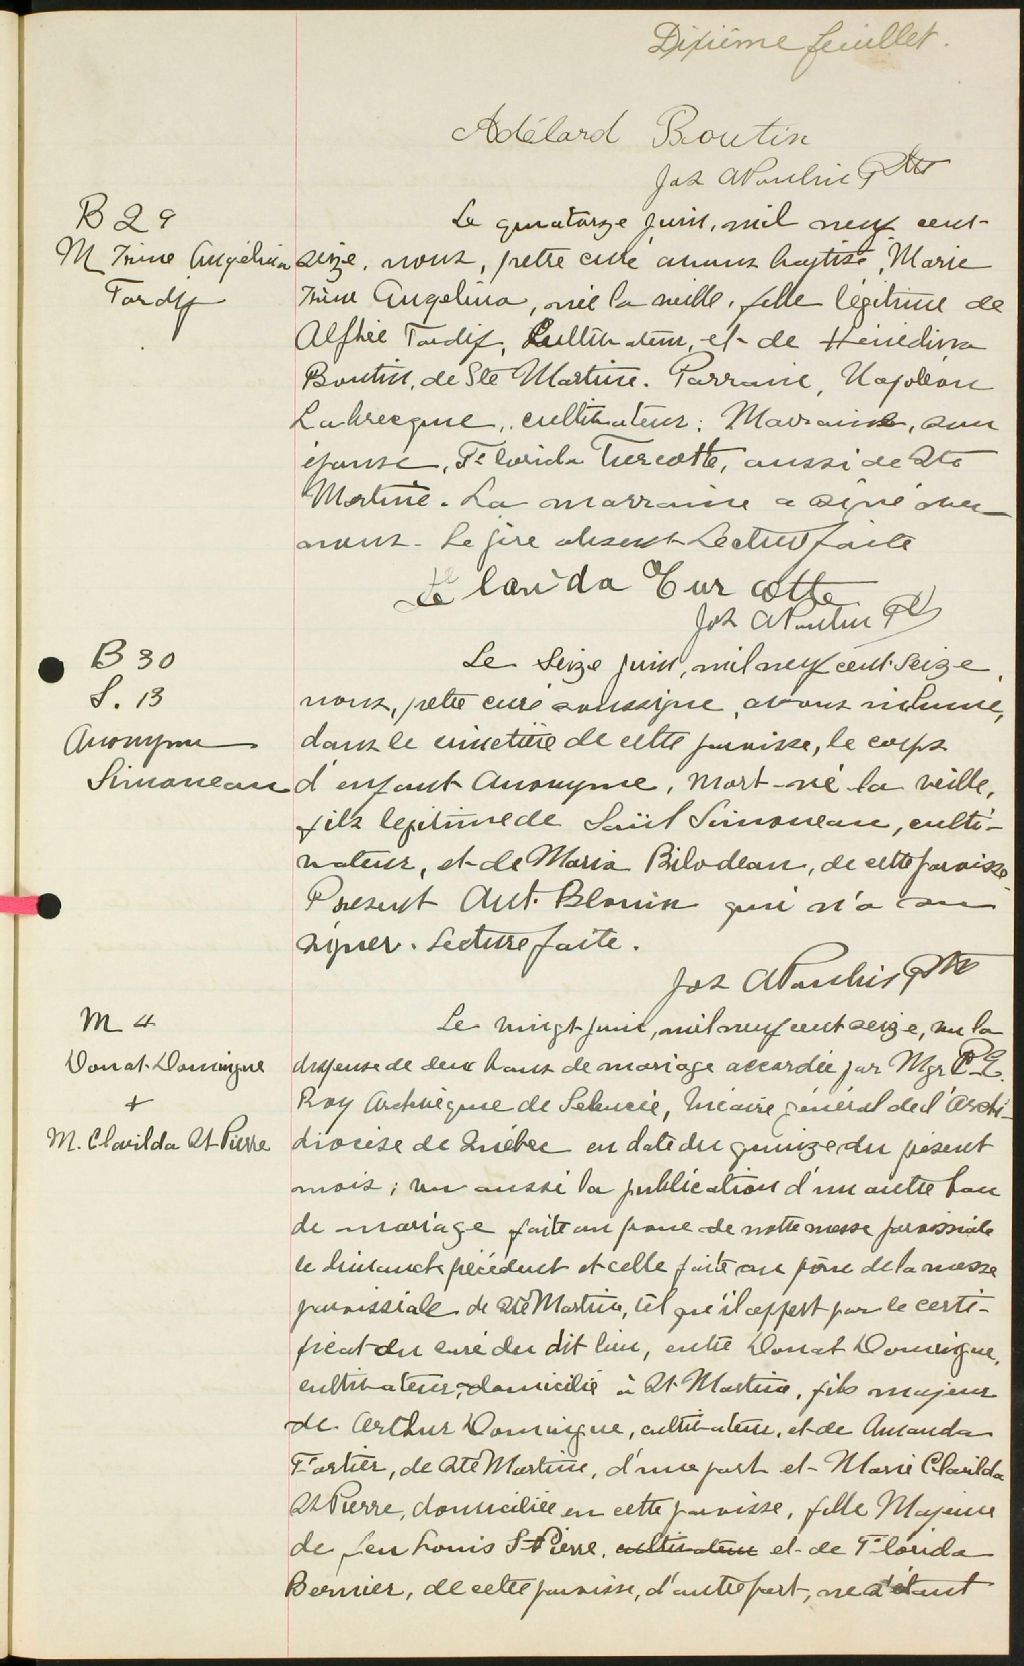 Dixième feuillet.
Adélard Boutin
Jos A Poulin Ptre
B 29
M Irène Angélina
Tardif
Le quatorze juin, mil neuf cent
seize, nous, prêtre curé avons baptisé, Marie
Irène Angelina, née la veille, fille légitime de
Alphée Tardif, Cultivateur, et de Hénédina
Boutin, de Ste Martine. Parrain, Napoléon
Labrecque, cultivateur; Marraine, son
épouse, Florida Turcotte, aussi de Ste
Martine. La marraine a signé avec
nous. Le père absent Lecture faite
Florida Turcotte
Jos A Poulin Ptre
B 30
S. 13
Anonyme
Simoneau
Le seize juin, mil neuf cent seize,
nous, prêtre curé soussigné, avons inhumé,
dans le cimetière de cette paroisse, le corps
d'enfant Anonyme, mort-né la veille,
fils légitime de Saül Simoneau, culti-
vateur, et de Maria Bilodeau, de cette paroisse.
Présent Ant. Blouin qui n'a su
signer. Lecture faite.
Jos A Poulin Ptre
M 4
Donat Domingue
+
M. Clarilda St Pierre
Le vingt juin, mil neuf cent seize, vu la
dispense de deux bans de mariage accordée par Mgr P. E.
Roy Archevêque de Séleucie, Vicaire général de l'Archi-
diocèse de Québec en date du quinze du présent
mois; vu aussi la publication d'un autre ban
de mariage faite au prone de notre messe paroissiale
le dimanche précédent et celle faite au prône de la messe
paroissiale de Ste Martine, tel qu'il appert par le certi-
ficat du curé du dit lieu, entre Donat Domingue,
cultivateur, domicilié à St Martine, fils majeur
de Arthur Domingue, cultivateur, et de Amanda
Fortier, de Ste Martine, d'une part et Marie Clarilda
St Pierre, domiciliée en cette paroisse, fille Majeure
de feu Louis St Pierre, cultivateur et de Florida
Bernier, de cette paroisse, d'autre part, ne s'étant